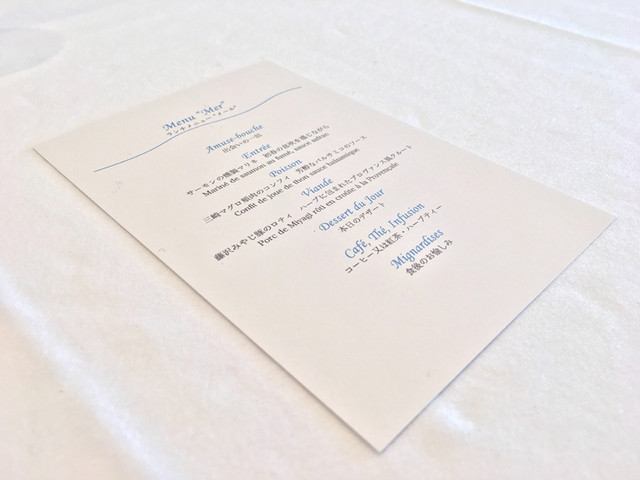 Menu "Mer"
ランチメニュー "メール"
Amuse-bouche
出会いの一皿
Entrée
サーモンの燻製マリネ 初春の息吹を感じながら
Mariné de saumon au fumé, sauce safran
Poisson
三崎マグロ頬肉のコンフィ 芳醇なバルサミコのソース
Confit de joue de thon sauce balsamique
Viande
藤沢みやじ豚のロティ ハーブに包まれたプロヴァンス風クルート
Porc de Miyagi rôti en croûte à la Provençale
Dessert du Jour
本日のデザート
Café, Thé, Infusion
コーヒー又は紅茶・ハーブティー
Mignardises
食後のお愉しみ